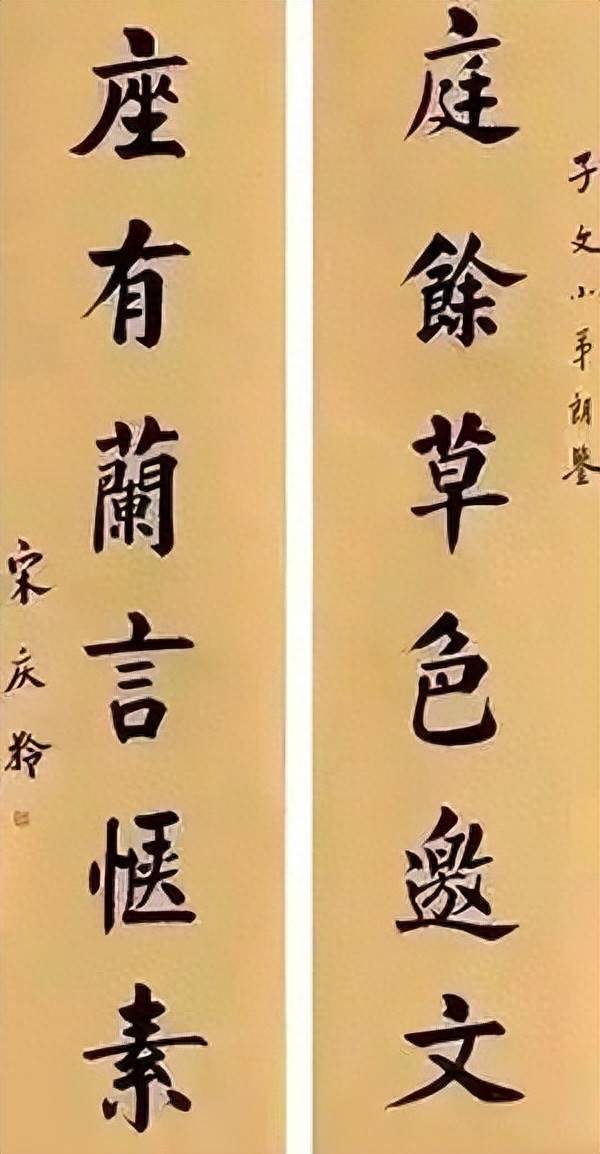 子文小弟朗鉴
庭餘草色邀文
座有蘭言惬素
宋庆龄